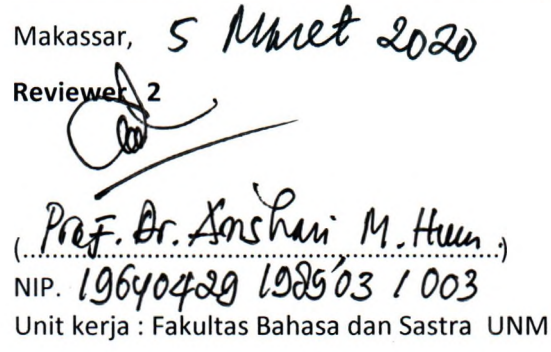 Makassar, 5 Maret 2020
Reviewer 2
(Prof. Dr. Anshari M. Hum.)
NIP. 19640429 198503 1 003
Unit kerja : Fakultas Bahasa dan Sastra UNM